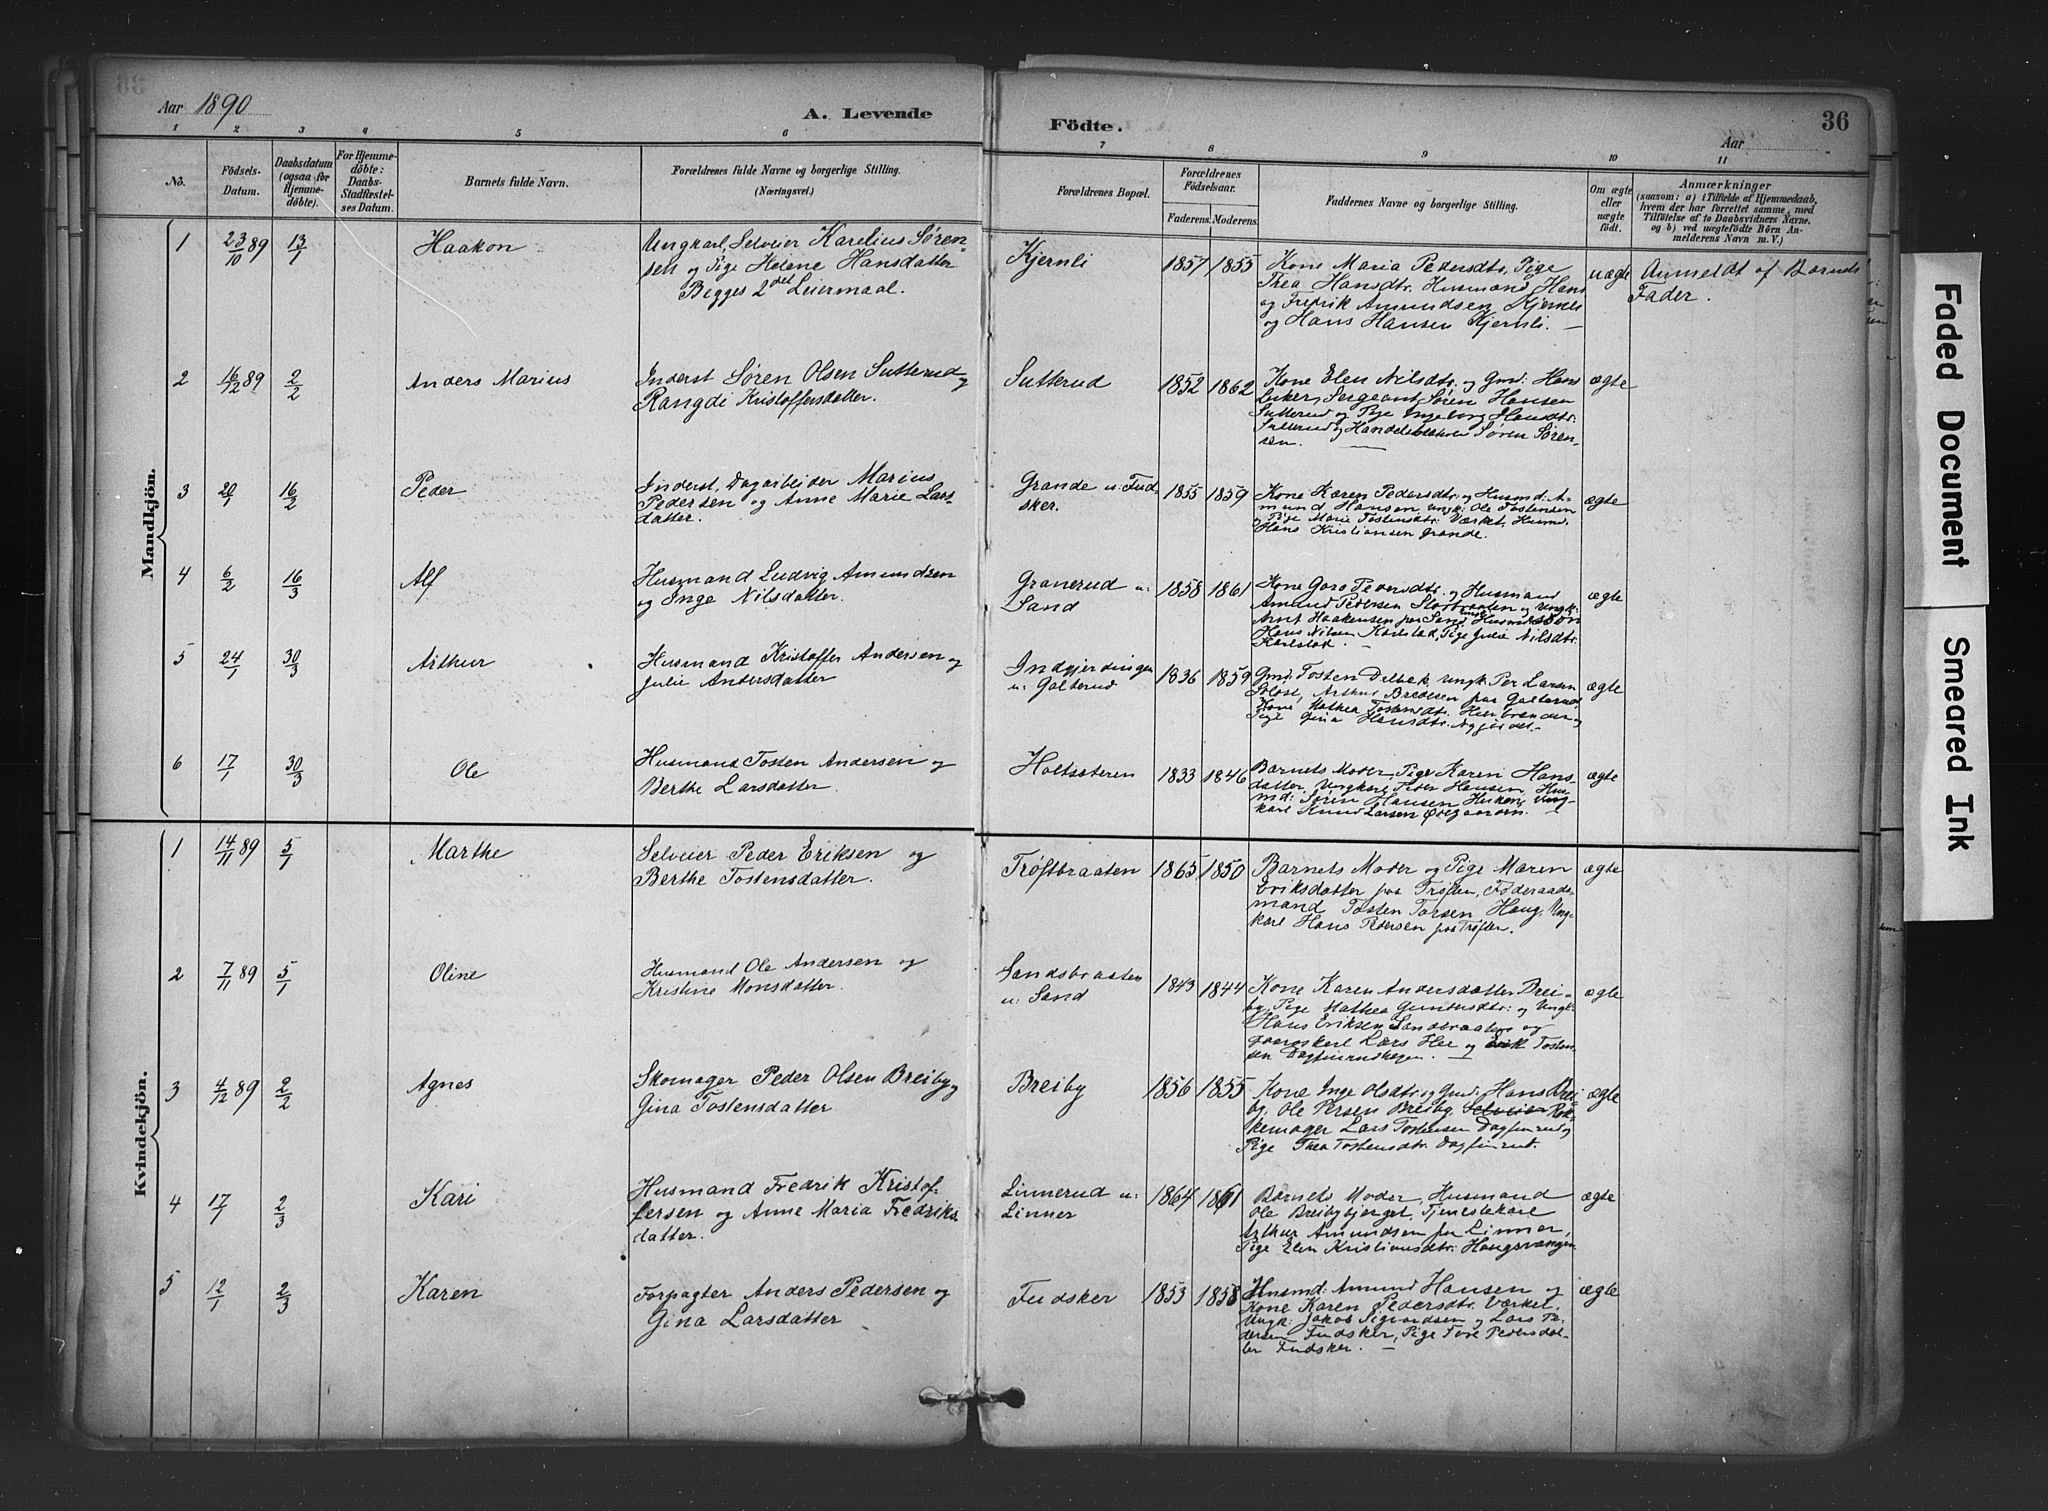 Aar 1890
A. Levende
Födte.
36
Aar
1 2 3 4 5 6 7 8 9 10 11
No.
Födsels-
Datum.
Daabsdatum
(ogsaa for
Hjemme-
döbte).
For Hjemme-
döbte:
Daabs-
Stadfæstel-
ses Datum.
Barnets fulde Navn.
Forældrenes fulde Navne og borgerlige Stilling.
(Næringsvei.)
Forældrenes Bopæl.
Forældrenes
Födselsaar.
Faderens. Moderens.
Faddernes Navne og borgerlige Stilling.
Om ægte
eller
uægte
födt.
Anmærkninger
(saasom: a) i Tilfælde af Hjemmedaab,
hvem der har forrettet samme, med
Tilföielse af to Daabsvidners Navne.
og b) ved uægtefödte Börn An-
melderens Navn m. V.)
Mandkjön.
1 23/10 89 13/1 Haakon
Ungkarl, Selveier Karelius Søren-
sen og Pige Helene Hansdatter
Begges 2det Leiermaal.
Kjernli 1857 1855
Kone Maria Pedersdtr, Pige
Thea Hansdtr. Husmand Hans
og Fredrik Amundsen Kjernli
og Hans Hansen Kjernli. –
uægte
Anmeldt af Barnets
Fader.
2 16/12 89 2/2 Anders Marius
Inderst Søren Olsen Sutterud og
Rangdi Kristoffersdatter.
Sutterud 1852 1862
Kone Elen Nilsdtr. og Gmd: Hans
Leker, Sergeant Søren Hansen
Sutterud og Pige Ingeborg Hansdtr.
Sutterud og Søren Søren-
sen.
ægte
3 20/1 16/2 Peder
Inderst, Dagarbeider Marius
Pedersen og Anne Marie Lars-
datter.
Grande u: Fud-
sker.
1855 1859
Kone Karen Pedersdtr. og Husmd: A-
mund Hansen, Ungk: Ole Tostensen
og Pige Marie Tostensdtr. Værket, Husmd.
Hans Kristiansen Grande.
ægte
4 6/2 16/3 Alf
Husmand Ludvig Amundsen
og Inge Nilsdatter.
Granerud u:
Sand
1858 1861
Kone Goro Pedersdtr. og Husmand
Amund Pedersen Storbraaten og Ungk:
Arnt Haakensen paa Sand, Husmandssøn
Hans Nilsen Karlstad, Pige Julie Nilsdtr.
Karlstad.
ægte
5 24/1 30/3 Arthur
Husmand Kristoffer Andersen og
Julie Andersdatter
Indgjerdingen
u: Galterud
1836 1859
Gmd: Tosten Delbæk, Ungk: Per Larsen
Arthur Bredesen paa Galterud
Kone Mathea Tostensdtr.
Pige Gina Hansdtr.
ægte
6 17/1 30/3 Ole
Husmand Tosten Andersen og
Berthe Larsdatter.
Holtsæteren 1833 1846
Barnets Moder, Pige Karen Hans-
datter, Ungkarl Peder Hansen, Hus-
md: Søren Hansen Ung-
karl Knud Larsen
ægte
Kvindekjön.
1 14/11 89 5/1 Marthe
Selveier Peder Eriksen og
Berthe Tostensdatter.
Trøftbraaten 1865 1850
Barnets Moder og Pige Maren
Eriksdatter paa Trøften, Føderaads-
mand Tosten Torsen Haug, Ung-
karl Hans Pedersen paa Trøften.
ægte
2 7/11 89 5/1 Oline
Husmand Ole Andersen og
Kristine Monsdatter.
Sandsbraaten
u: Sand
1843 1844
Kone Karen Andersdatter Brei-
by, Pige Mathea Gundersdtr. og Ungk:
Hans Eriksen Sandbraaten og
Lars Hee og Erik Tosten-
sen Dagfinrudhagen. –
ægte
3 4/12 89 2/2 Agnes
Skomager Peder Olsen Breiby og
Gina Tostensdatter
Breiby 1856 1855
Kone Inge Olsdtr. og Gmd: Hans Brei-
by, Ole Persen Breiby,
Lars Tostensen Dagfinrud og
Pige Thea Tostensdtr. Dagfinrud.
ægte
4 17/1 2/3 Kari
Husmand Fredrik Kristof-
fersen og Anne Maria Fredriks-
datter.
Linnerud u:
Linner
1864 1861
Barnets Moder, Husmand
Ole Breibybjerget, Tjenestekarl
Arthur Amundsen paa Linner,
Pige Elen Kristiansdtr. Haugsvangen
ægte
5 12/1 2/3 Karen
Forpagter Anders Pedersen og
Gina Larsdatter
Fudsker 1853 1858
Husmd: Amund Hansen og
Kone Karen Pedersdtr. Værket,
Ungk: Jakob Sigvardsen og Lars Pe-
dersen Fudsker, Pige Tore Pedersdat-
ter Fudsker. –
ægte
Faded Document
Smeared Ink